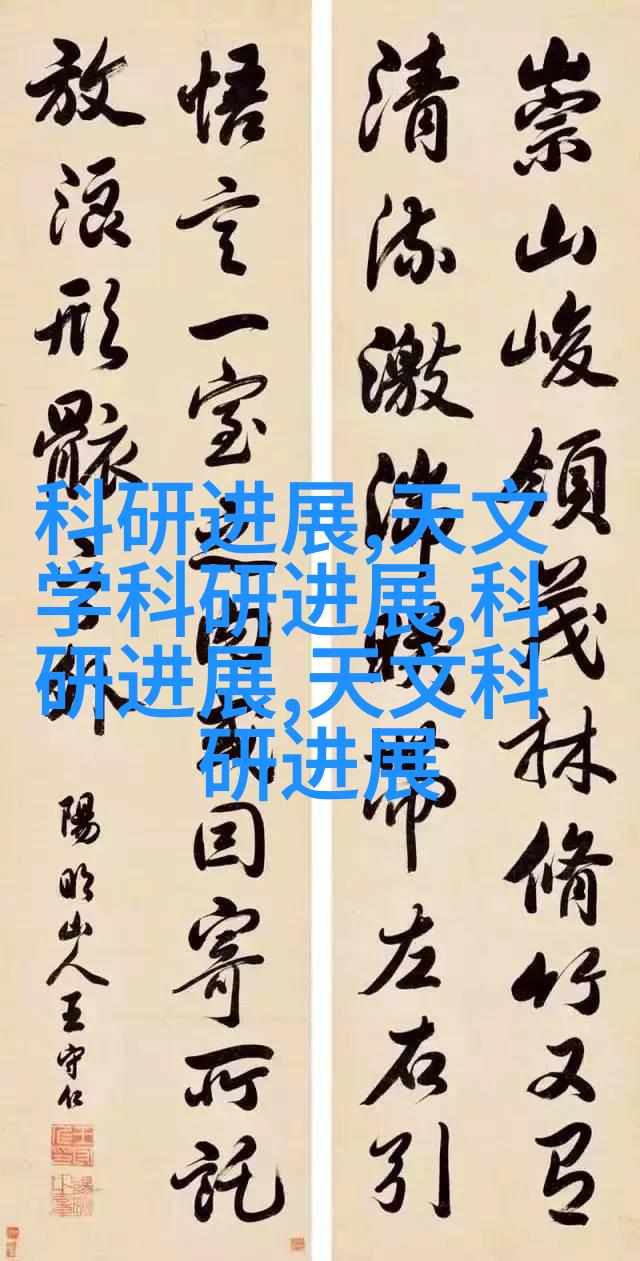 崇山峻領茂林脩竹又有
清流激湍暎帶左右引
悟言一室之内或因寄所託
放浪形骸之外
陽明山人王守仁
科研进展,天文
学科研进展,科
研进展,天文科
研进展